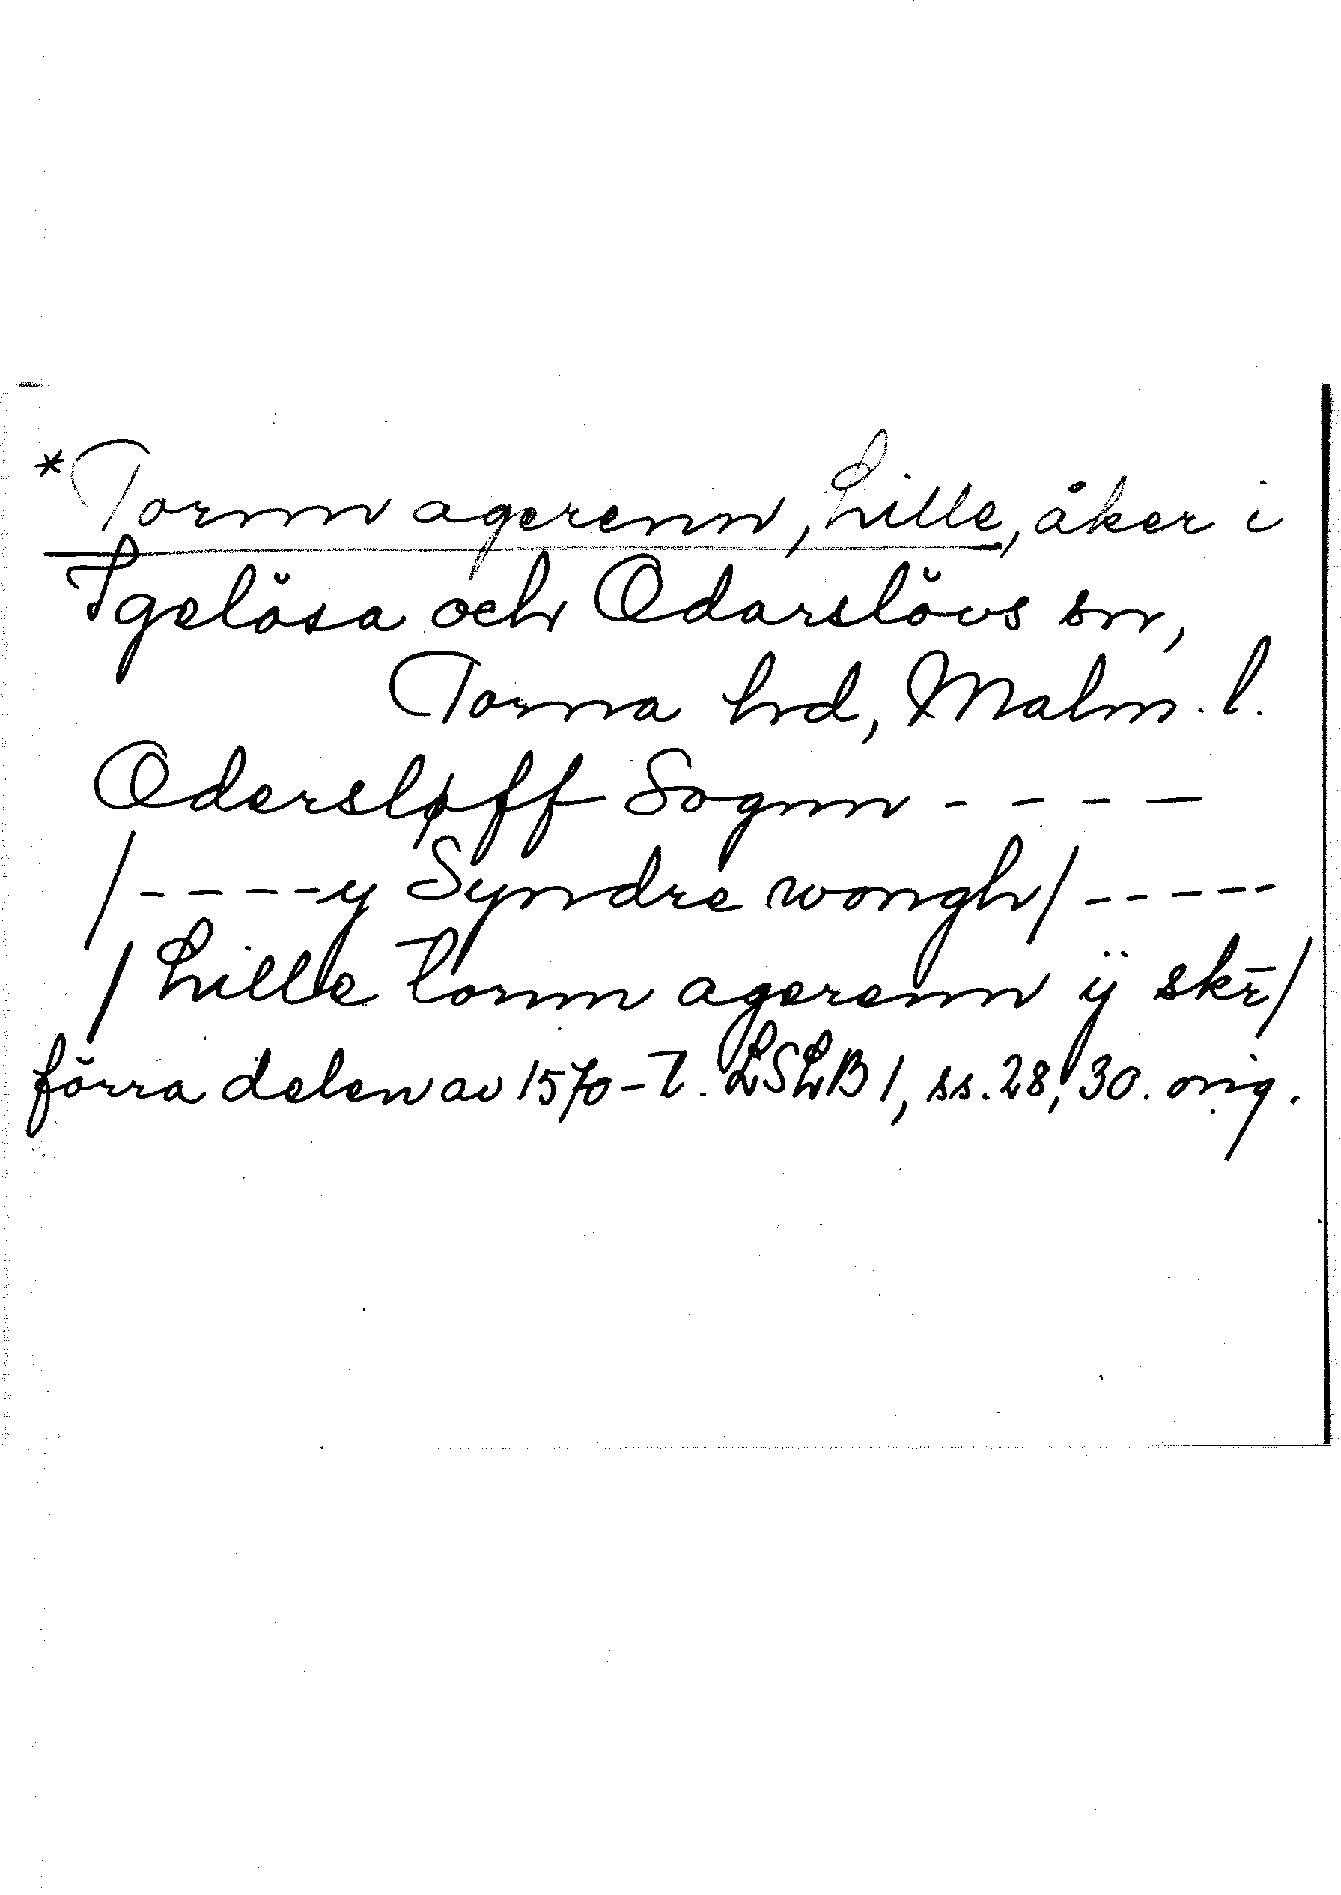 *Tornn agerenn, Lille, åker i
Igelösa och Odarslövs sn,
Torna hd, Malm. l.
Odersløff Sognn - - - -
/ - - - - y Syndre wongh / - - - - -
/ Lille tornn agerenn ÿ skr̄ /
förra delen av 1570-t. LSLB 1, ss. 28, 30. orig.